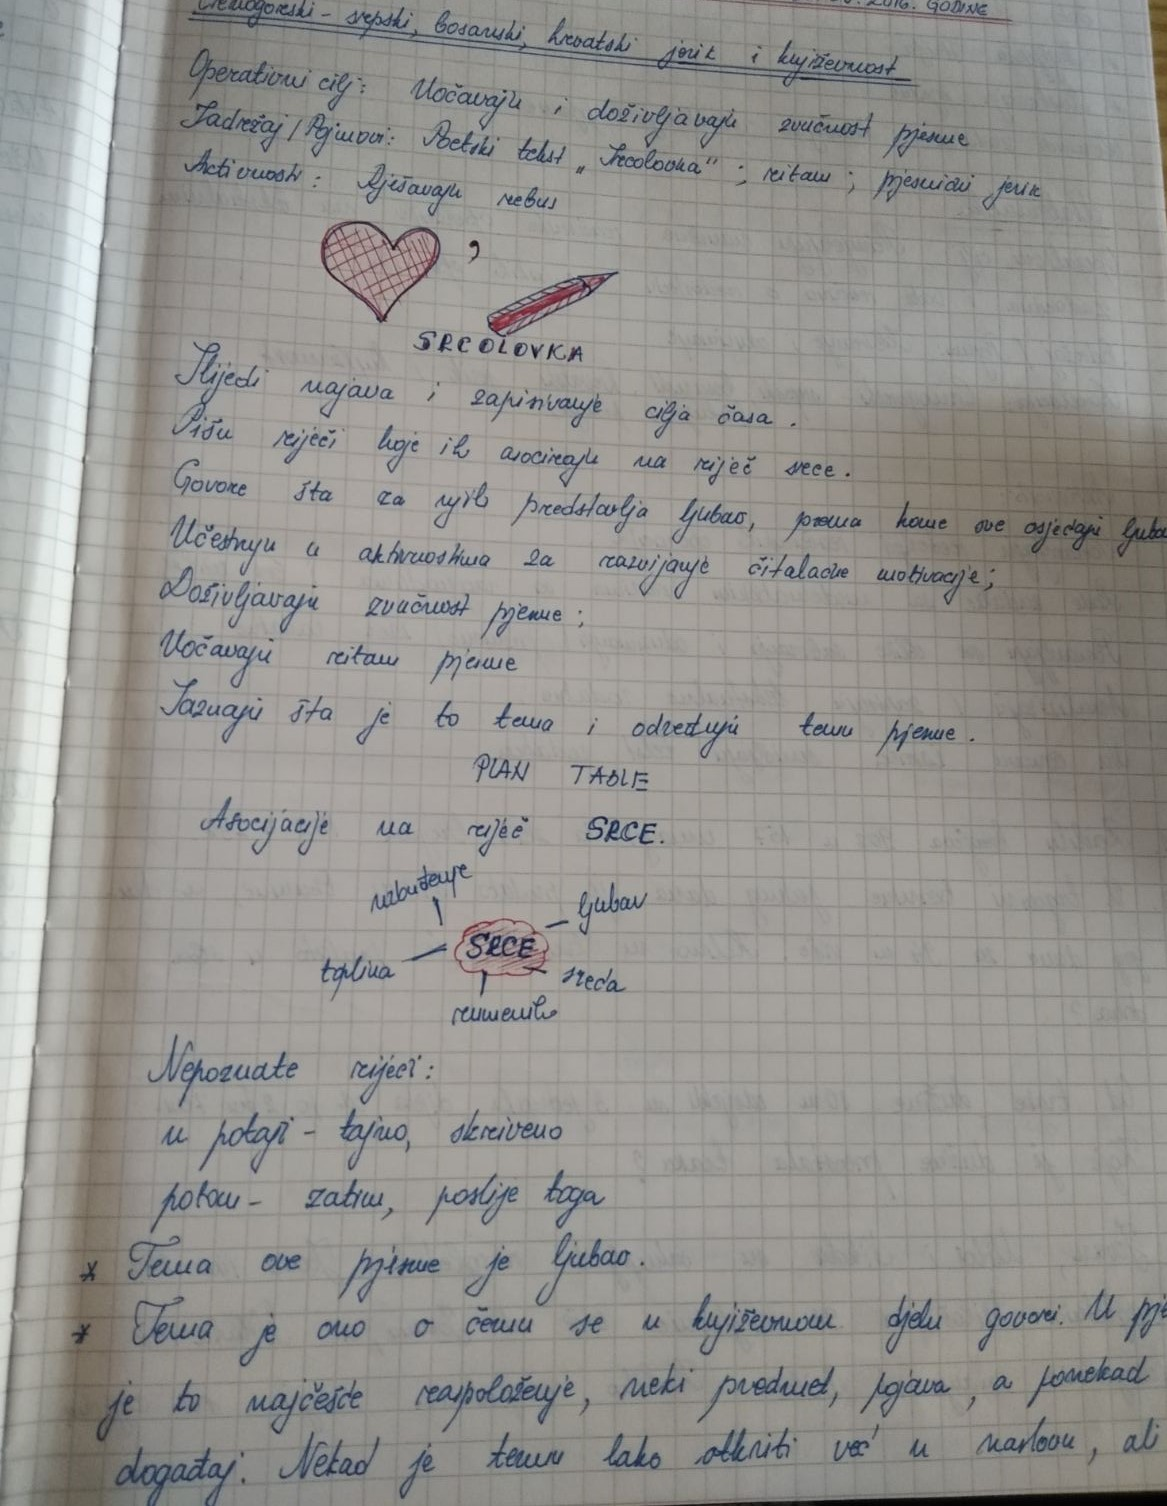 2016. GODINE
Crnogorski - srpski, bosanski, hrvatski jezik i književnost
Operativni cilj: Uočavaju i doživljavaju zvučnost pjesme
Sadržaj / Pojmovi: Poetski tekst „Srcolovka"; ritam; pjesnički jezik
Aktivnosti: Rješavaju rebus
,
SRCOLOVKA
Slijedi najava i zapisivanje cilja časa.
Pišu riječi koje ih asociraju na riječ srce.
Govore šta za njih predstavlja ljubav, prema kome sve osjećaju ljubav
Učestvuju u aktivnostima za razvijanje čitalačke motivacije;
Doživljavaju zvučnost pjesme;
Uočavaju ritam pjesme
Saznaju šta je to tema i određuju temu pjesme.
PLAN TABLE
Asocijacije na riječ SRCE.
uzbuđenje
ljubav
SRCE
toplina
sreća
rumenilo
Nepoznate riječi:
u potaji - tajno, skriveno
potom - zatim, poslije toga
* Tema ove pjesme je ljubav.
* Tema je ono o čemu se u književnom djelu govori. U pje
je to najčešće raspoloženje, neki predmet, pojava, a ponekad
događaj. Nekad je temu lako otkriti već u naslovu, ali